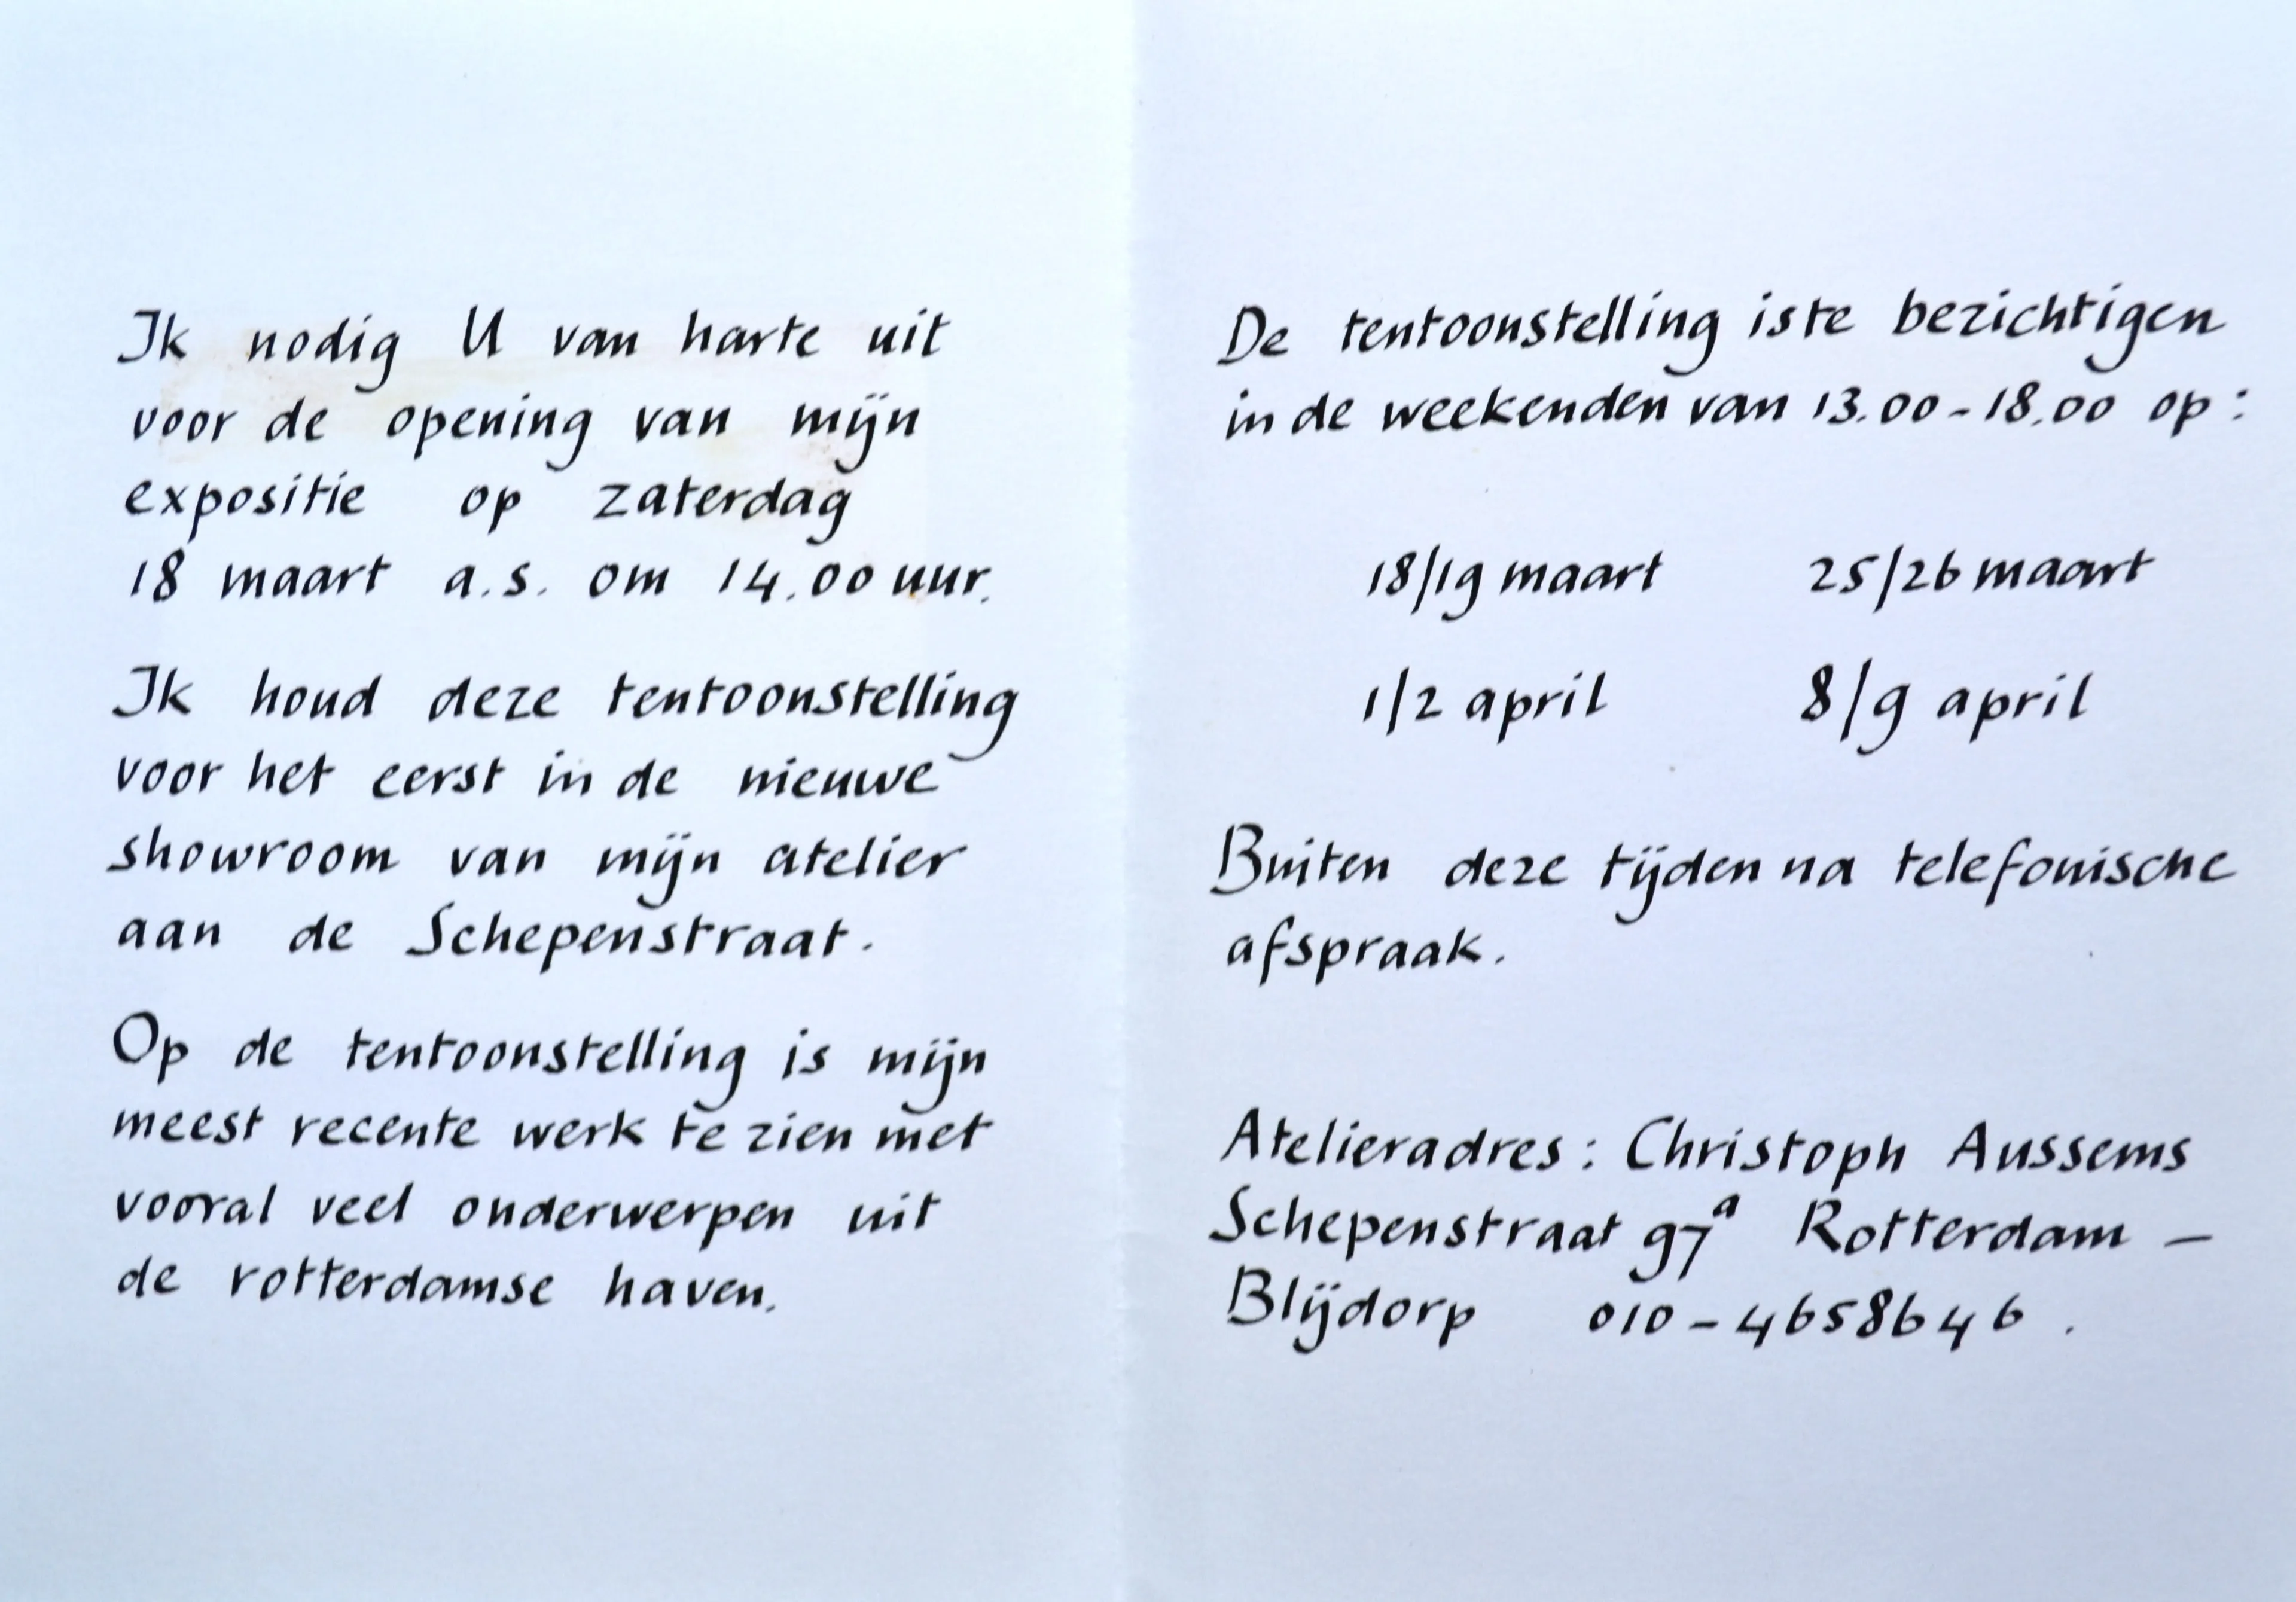 Ik nodig U van harte uit
voor de opening van mijn
expositie op zaterdag
18 maart a.s. om 14.00 uur.
Ik houd deze tentoonstelling
voor het eerst in de nieuwe
showroom van mijn atelier
aan de Schepenstraat.
Op de tentoonstelling is mijn
meest recente werk te zien met
vooral veel onderwerpen uit
de rotterdamse haven.
De tentoonstelling is te bezichtigen
in de weekenden van 13.00-18.00 op:
18/19 maart 25/26 maart
1/2 april 8/9 april
Buiten deze tijden na telefonische
afspraak.
Atelieradres: Christoph Aussems
Schepenstraat 97ᵃ Rotterdam –
Blijdorp 010-4658646.